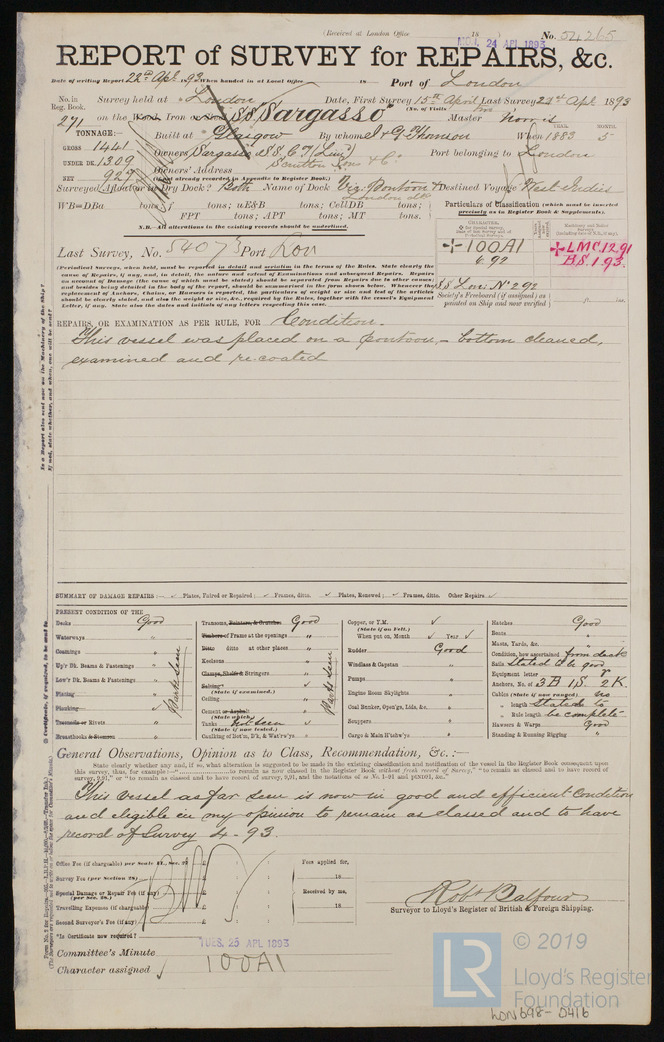 (Received at London Office 18 ) No. 54265
MON. 24 APL 1893
REPORT of SURVEY for REPAIRS, &c.
Date of writing Report 22nd Apl. 93 When handed in at Local Office 18 Port of London
No. in Reg. Book. Survey held at London Date, First Survey 15th April Last Survey 21st Apl 1893
(No. of Visits two)
271 on the Wood, Iron or Steel SS "Sargasso" Master Norris
TONNAGE:— Built at Glasgow By whom J & G Thomson When 1883 5
YEAR. MONTH.
GROSS 1441 Owners Sargasso SS Co (Lim) Port belonging to London
UNDER DK. 1309 Scrutton Sons & Co.
NET 927 Owners' Address
(if not already recorded in Appendix to Register Book.)
Surveyed Afloat or in Dry Dock? Both Name of Dock Vic. Pontoon & London dk Destined Voyage West Indies
WB=DBa tons; f tons; uE&B tons; CellDB tons;
FPT tons; APT tons; MT tons.
N.B.—All alterations in the existing records should be underlined.
Particulars of Classification (which must be inserted precisely as in Register Book & Supplements).
CHARACTER.
+100A1
6.92
+LMC 12.91
BS. 1.93.
SS Lon. No 2 92
Society's Freeboard (if assigned) as painted on Ship and now verified ft. ins.
Last Survey, No. 54073 Port Lon
(Periodical Surveys, when held, must be reported in detail and seriatim in the terms of the Rules. State clearly the cause of Repairs, if any, and, in detail, the nature and extent of Examinations and subsequent Repairs. Repairs on account of Damage (the cause of which must be stated) should be separated from Repairs due to other causes; and besides being detailed in the body of the report, should be summarised in the form shown below.
REPAIRS, OR EXAMINATION AS PER RULE, FOR Condition.
This vessel was placed on a pontoon, – bottom cleaned,
examined and re-coated
SUMMARY OF DAMAGE REPAIRS:— ✓ Plates, Faired or Repaired; ✓ Frames, ditto. ✓ Plates, Renewed; ✓ Frames, ditto. Other Repairs ✓
PRESENT CONDITION OF THE
Decks Good
Waterways "
Coamings "
Up'r Dk. Beams & Fastenings "
Low'r Dk. Beams & Fastenings "
Plating "
Planking ✓
Treenails or Rivets "
Breasthooks & Stemson "
Parts seen
Transoms, Pointers, & Crutches Good
Timbers of Frame at the openings "
Ditto ditto at other places "
Keelsons "
Clamps, Shelfs & Stringers "
Salting ✓
(State if examined.)
Ceiling "
Cement or Asphalt "
(State which)
Tanks Not seen
(State if now tested.)
Caulking of Bot'm, D'k, & Wat'rw'ys "
Parts seen
Copper, or Y.M. ✓
(State if on Felt.)
When put on, Month ✓ Year ✓
Rudder Good
Windlass & Capstan "
Pumps "
Engine Room Skylights "
Coal Bunker, Open'gs, Lids, &c. "
Scuppers "
Cargo & Main H'tchw'ys "
Hatches Good
Boats "
Masts, Yards, &c. "
Condition, how ascertained from deck
Sails Stated to be good
Equipment letter
Anchors, No. of 3B 1S 2K
Cables (State if now ranged) no
" length Stated to
" Rule length be complete
Hawsers & Warps Good
Standing & Running Rigging "
General Observations, Opinion as to Class, Recommendation, &c.:—
State clearly whether any, and if so, what alteration is suggested to be made in the existing classification and notification of the vessel in the Register Book consequent upon
this survey, thus, for example:—"to remain as now classed in the Register Book without fresh record of Survey," "to remain as classed and to have record of
survey, 9,91," or "to remain as classed and to have record of survey, 9,91, and the notations of ss No. 1-91 and pt(ND)91, &c."
This vessel as far seen is now in good and efficient Condition
and eligible in my opinion to remain as classed and to have
record of Survey 4-93.
Office Fee (if chargeable) per Scale £ : : Fees applied for,
Survey Fee (per Section 28) £ : : 18
Special Damage or Repair Fee (if any) (per Sec. 28.) £ : : Received by me,
Travelling Expenses (if chargeable) £ : : 18
Second Surveyor's Fee (if any) £ : :
*Is Certificate now required?
Robt Balfour
Surveyor to Lloyd's Register of British & Foreign Shipping.
Committee's Minute TUES. 25 APL 1893
Character assigned 100A1
LR
© 2019
Lloyd's Register
Foundation
LON698-0416